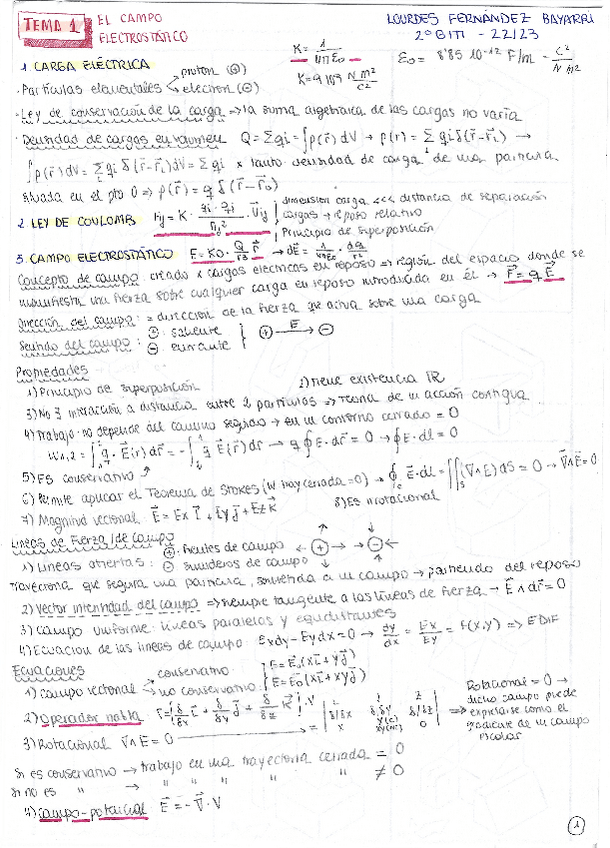 TEMA 1 EL CAMPO ELECTROSTÁTICO
LOURDES FERNÁNDEZ BAYARRI
2º BITI - 22/23
K = 1 / 4πε₀
ε₀ = 8'85 10⁻¹² F/m - C²/N m²
K = 9·10⁹ N m²/C²
1. CARGA ELÉCTRICA
· Partículas elementales proton (+) electron (-)
· Ley de conservación de la carga ⇒ la suma algebraica de las cargas no varía
· Densidad de cargas en volumen Q = Σqi = ∫ρ(r) dV → ρ(r) = Σ qi δ(r-ri) →
∫ρ(r) dV = Σ qi δ(r-ri) dV = Σ qi x tanto densidad de carga de una partícula
situada en el pto 0 ⇒ ρ(r) = q δ(r-r₀)
2. LEY DE COULOMB Fij = K · qi · qj / rij² · Uij
dimension carga <<< distancia de separación
cargas → reposo relativo
Principio de superposición
3. CAMPO ELECTROSTÁTICO E = K₀ · Q/r³ r → dE = 1/4πε₀ · dq/r²
Concepto de campo creado x cargas electricas en reposo ⇒ región del espacio donde se
manifiesta una fuerza sobre cualquier carga en reposo introducida en él → F = q E
Dirección del campo: = dirección de la fuerza que actua sobre una carga
Sentido del campo: (+): saliente
(-): entrante
(+) E → (-)
Propiedades
1) Principio de superposición 2) Tiene existencia IR
3) No ∃ interacción a distancia entre 2 partículas ⇒ Teoría de un acción contigua
4) Trabajo no depende del camino seguido → en un contorno cerrado = 0
W₁,₂ = ∫ q · E(r) dr = - ∫ q E(r) dr → q ∮ E · dr = 0 → ∮ E · dl = 0
5) Es conservativo
6) Permite aplicar el Teorema de Stokes (W tray cerrada = 0) → ∮ E · dl = ∬ (∇∧E) dS = 0 → ∇∧E = 0
7) Magnitud vectorial E = Ex i + Ey j + Ez k 8) Es irrotacional
Líneas de Fuerza/de campo
1) Lineas abiertas: (+): fuentes de campo
(-): sumideros de campo
trayectoria que seguiría una partícula, sometida a un campo → partiendo del reposo
2) Vector intensidad del campo ⇒ siempre tangente a las líneas de fuerza → E ∧ dr = 0
3) Campo uniforme: líneas paralelas y equidistantes
4) Ecuación de las lineas de campo: Ex dy - Ey dx = 0 → dy/dx = Ex/Ey = f(x,y) ⇒ EDIF
Ecuaciones
1) Campo vectorial conservativo: E = E₀(xi + yj)
no conservativo: E = E₀(xi + xyj)
2) Operador nabla
3) Rotacional ∇∧E = 0
Rotacional = 0 →
dicho campo puede
expresarse como el
gradiente de un campo
escalar
Si es conservativo → trabajo en una trayectoria cerrada = 0
Si no es " → " " " " ≠ 0
4) Campo-potencial: E = -∇ · V
1